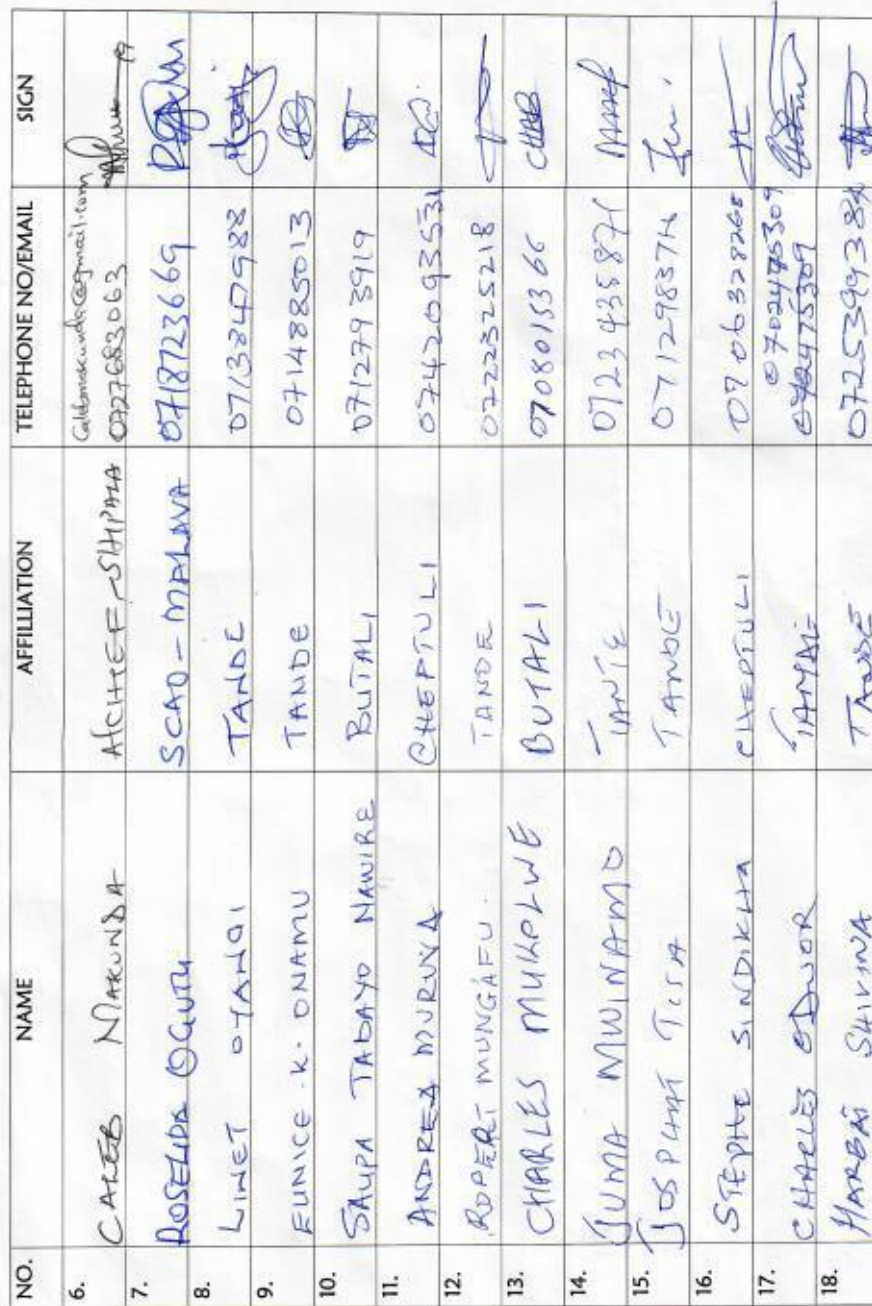 NO. NAME AFFILLIATION TELEPHONE NO/EMAIL SIGN
6. CALEB MAKUNDA A/CHIEF-SHIPALA Calebmakunda@gmail.com
0727683063
7. ROSELIDA OGUTU SCAO - MALAVA 0718723669
8. LINET OYANDI TANDE 0713847988
9. EUNICE K. ONAMU TANDE 0714885013
10. TABAYO NAWIRE BUTALI 0712793919
11. ANDREA MURUYA CHEPTULI 0742093531
12. ROPERT MUNGAFU. TANDE 0722325218
13. CHARLES BUTALI 0708015366
14. JUMA MWINAMO 0723435871
15. JOSPHAT TANDE
16. STEPHE SINDIKHA CHEPTULI 0706328268
17. CHARLES 0702475309
0702475309
18. SHIVINA TANDE